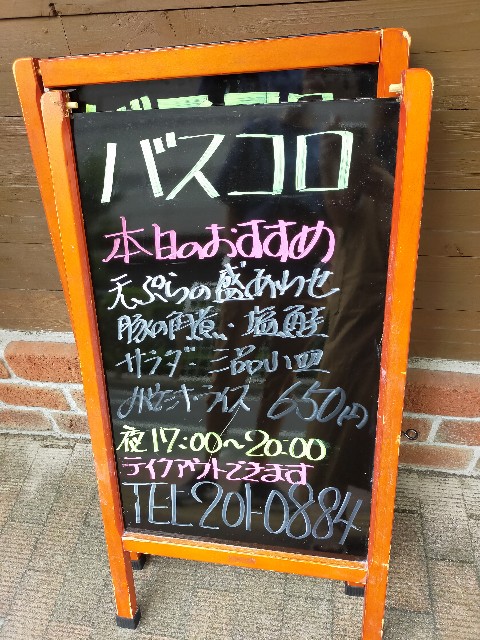 バスコロ
本日のおすすめ
天ぷらの盛あわせ
豚の角煮・塩鯖
サラダ・三品小皿
みそ汁・ライス 650円
夜17:00〜20:00
テイクアウトできます
TEL 201-0884